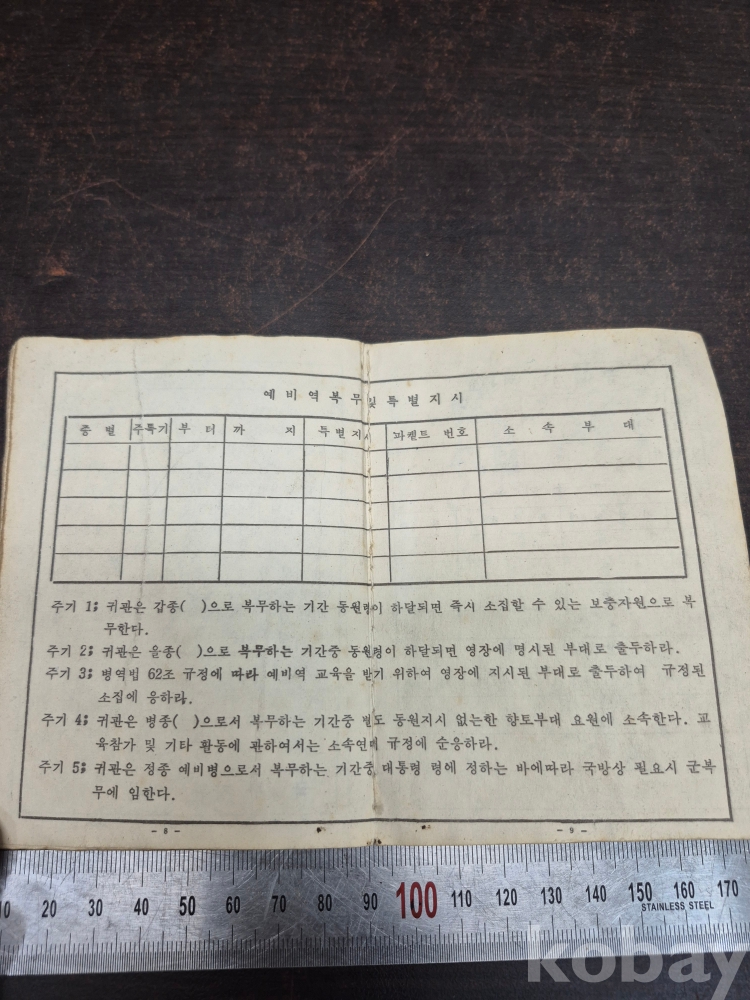 예비역복무및특별지시
종별 주특기 부터 까지 특별지시 파켙트 번호 소속부대
주기 1; 귀관은 갑종( )으로 복무하는 기간 동원령이 하달되면 즉시 소집할 수 있는 보충자원으로 복
무한다.
주기 2; 귀관은 을종( )으로 복무하는 기간중 동원령이 하달되면 영장에 명시된 부대로 출두하라.
주기 3; 병역법 62조 규정에 따라 예비역 교육을 받기 위하여 영장에 지시된 부대로 출두하여 규정된
소집에 응하라.
주기 4; 귀관은 병종( )으로서 복무하는 기간중 별도 동원지시 없는한 향토부대 요원에 소속한다. 교
육참가 및 기타 활동에 관하여서는 소속연대 규정에 순응하라.
주기 5; 귀관은 정종 예비병으로서 복무하는 기간중 대통령 령에 정하는 바에따라 국방상 필요시 군복
무에 임한다.
- 8 - - 9 -
10 20 30 40 50 60 70 80 90 100 110 120 130 140 150 160 170
STAINLESS STEEL
kobay